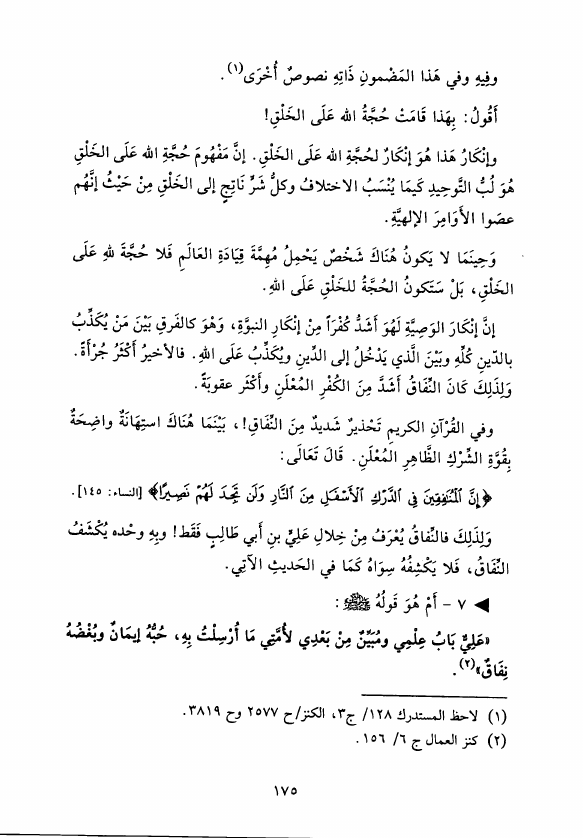 وفِيهِ وفي هَذا المَضْمونِ ذَاتِهِ نصوصٌ أُخْرَى(١).
أَقُولُ: بِهَذا قَامَتْ حُجَّةُ الله عَلَى الخَلْقِ!
وإنْكَارُ هَذا هُوَ إنْكَارٌ لحُجَّةِ الله عَلَى الخَلْقِ. إنَّ مَفْهُومَ حُجَّةِ الله عَلَى الخَلْقِ
هُوَ لُبُّ التَّوحِيدِ كَيمَا يُنْسَبُ الاختلافُ وكلُّ شَرٍّ نَاتِجٍ إلى الخَلْقِ مِنْ حَيْثُ إنَّهُم
عصَوا الأَوَامِرَ الإلهيَّةِ.
وَحِينَمَا لا يَكونُ هُنَاكَ شَخْصٌ يَحْمِلُ مُهِمَّةَ قِيَادَةِ العَالَمِ فَلا حُجَّةَ للهِ عَلَى
الخَلْقِ، بَلْ سَتَكونُ الحُجَّةُ للخَلْقِ عَلَى اللهِ.
إنَّ إنْكَارَ الوَصِيَّةِ لَهُوَ أَشَدُّ كُفْرَاً مِنْ إنْكَارِ النبوَّةِ، وَهْوَ كالفَرقِ بَيْنَ مَنْ يُكَذِّبُ
بالدِّينِ كُلِّهِ وبَيْنَ الَّذي يَدْخُلُ إلى الدِّينِ ويُكَذِّبُ عَلَى اللهِ. فالأخيرُ أَكثَرُ جُرْأَةً.
وَلِذَلِكَ كَانَ النِّفَاقُ أشَدَّ مِنَ الكُفْرِ المُعْلَنِ وأكْثَر عقوبَةً.
وفي القُرْآنِ الكريمِ تَحْذيرٌ شَديدٌ مِنَ النِّفَاقِ!، بَيْنَمَا هُنَاكَ استِهَانَةٌ واضِحَةٌ
بِقُوَّةِ الشِّرْكِ الظَّاهِرِ المُعْلَنِ. قَالَ تَعَالَى:
﴿إِنَّ ٱلْمُنَٰفِقِينَ فِى ٱلدَّرْكِ ٱلْأَسْفَلِ مِنَ ٱلنَّارِ وَلَن تَجِدَ لَهُمْ نَصِيرًا﴾ [النساء: ١٤٥].
وَلِذَلِكَ فالنِّفاقُ يُعْرَفُ مِنْ خِلالِ عَلِيِّ بنِ أبي طَالِبٍ فَقَط! وبِهِ وحْده يُكْشَفُ
النِّفَاقُ، فَلا يَكْشِفُهُ سِوَاهُ كَمَا في الحَديثِ الآتِي.
◄ ٧ - أمْ هُوَ قَولُهُ ﷺ:
«عَلِيٌّ بَابُ عِلْمِي ومُبَيِّنٌ مِنْ بَعْدِي لأُمَّتِي مَا أُرْسِلْتُ بِهِ، حُبُّهُ إيمَانٌ وبُغْضُهُ
نِفَاقٌ»(٢).
(١) لاحظ المستدرك ١٢٨/ ج٣، الكنز/ح ٢٥٧٧ وح ٣٨١٩.
(٢) كنز العمال ج ٦/ ١٥٦.
١٧٥